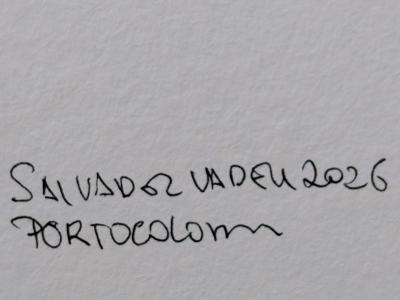 SALVADOR VADELL 2026
PORTOCOLOM